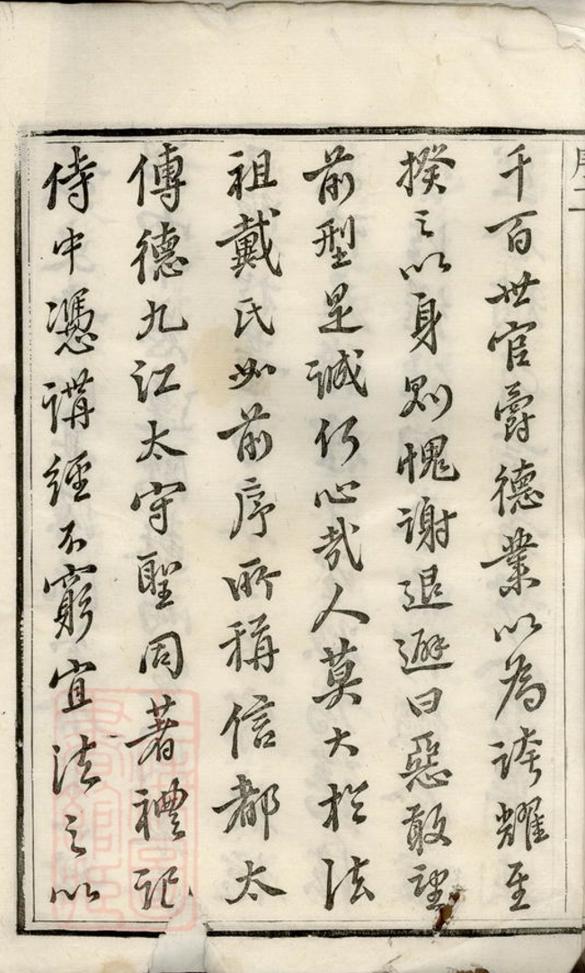 千百世官爵德業以為誇耀至
揆之以身則愧謝退避曰惡敢望
前型是誠何心哉人莫大於法
祖戴氏如前序所稱信都太
傅德九江太守聖同著禮記
侍中憑講經不窮宜法之以